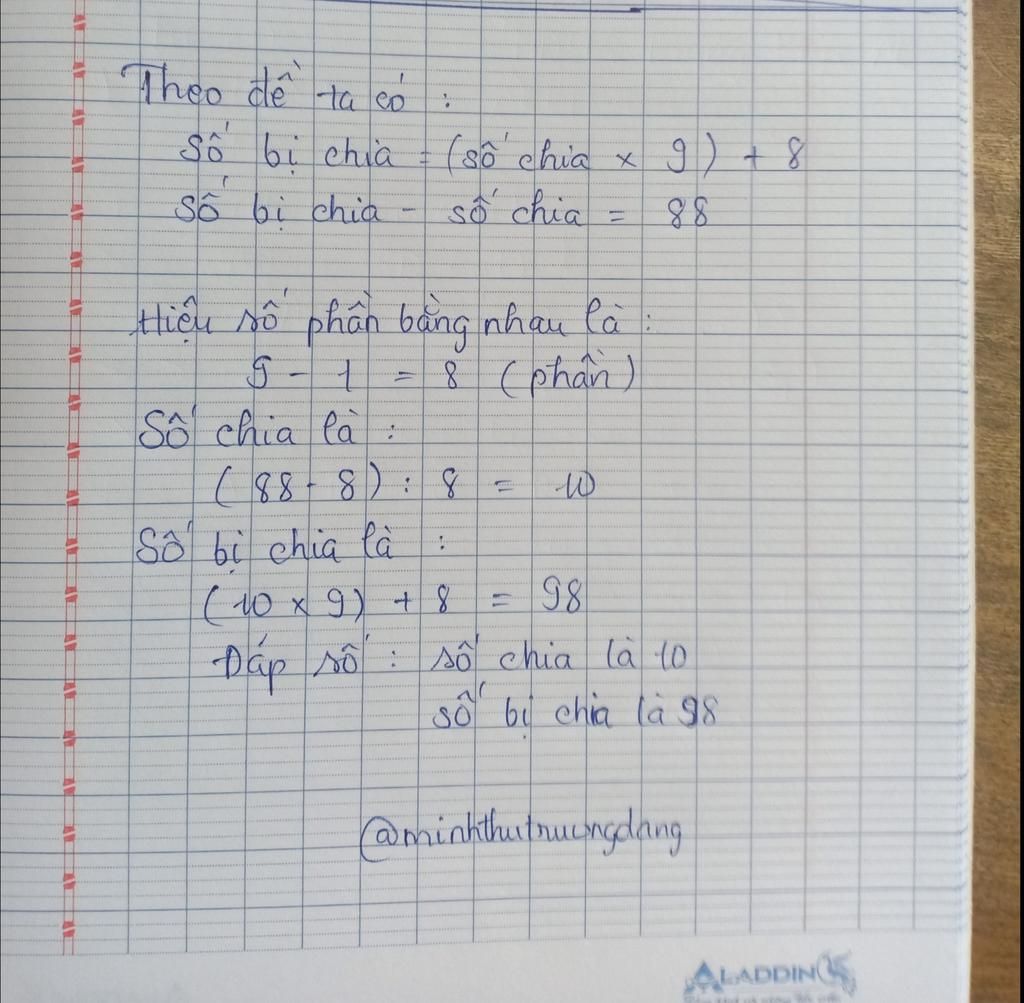 Theo đề ta có :
Số bị chia = (số chia x 9) + 8
Số bị chia - số chia = 88
Hiệu số phần bằng nhau là :
9 - 1 = 8 (phần)
Số chia là :
(88 - 8) : 8 = 10
Số bị chia là :
(10 x 9) + 8 = 98
Đáp số : số chia là 10
số bị chia là 98
@minhthutruongdang
ALADDIN